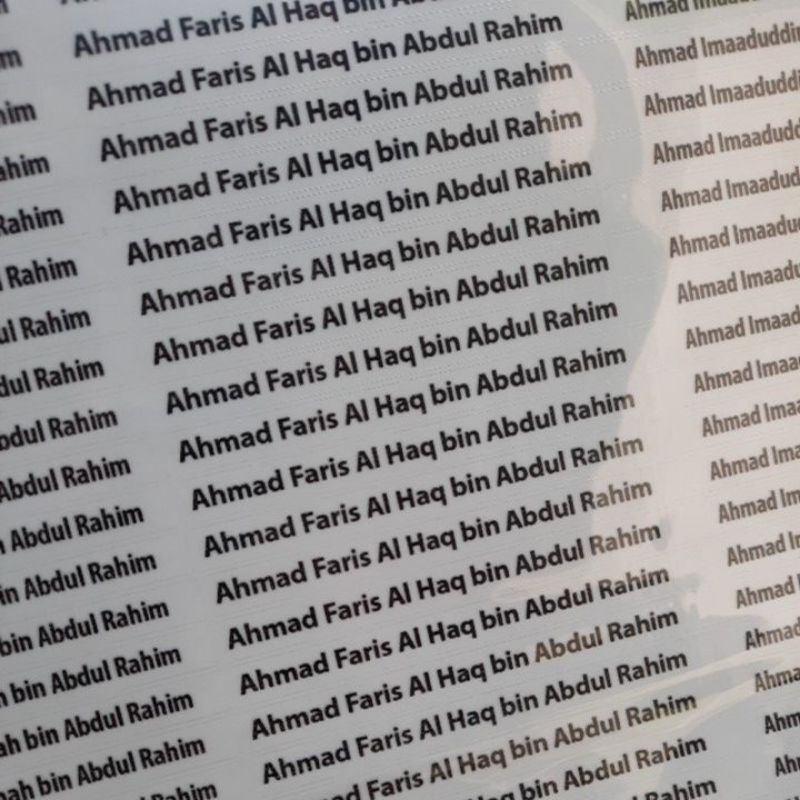 Rahim
Rahim
Rahim
Rahim
Abdul Rahim
Abdul Rahim
Abdul Rahim
bin Abdul Rahim
bin Abdul Rahim
bin Abdul Rahim
bin Abdul Rahim
Rahim
Ahmad Faris Al Haq bin
Ahmad Faris Al Haq bin Abdul Rahim
Ahmad Faris Al Haq bin Abdul Rahim
Ahmad Faris Al Haq bin Abdul Rahim
Ahmad Faris Al Haq bin Abdul Rahim
Ahmad Faris Al Haq bin Abdul Rahim
Ahmad Faris Al Haq bin Abdul Rahim
Ahmad Faris Al Haq bin Abdul Rahim
Ahmad Faris Al Haq bin Abdul Rahim
Ahmad Faris Al Haq bin Abdul Rahim
Ahmad Faris Al Haq bin Abdul Rahim
Ahmad Faris Al Haq bin Abdul Rahim
Ahmad Faris Al Haq bin Abdul Rahim
Ahmad Faris Al Haq bin Abdul Rahim
Ahmad Faris Al Haq bin Abdul Rahim
Ahmad Faris Al Haq bin Abdul Rahim
Faris Al Haq bin Abdul Rahim
bin Abdul Rahim
Rahim
Ahmad
Ahmad Imaaduddin
Ahmad Imaaduddi
Ahmad Imaadudd
Ahmad Imaadud
Ahmad Imaadu
Ahmad Imaadu
Ahmad Imaad
Ahmad Imaa
Ahmad Imaa
Ahmad Ima
Ahmad Im
Ahmad I
Ahmad
Ahmad